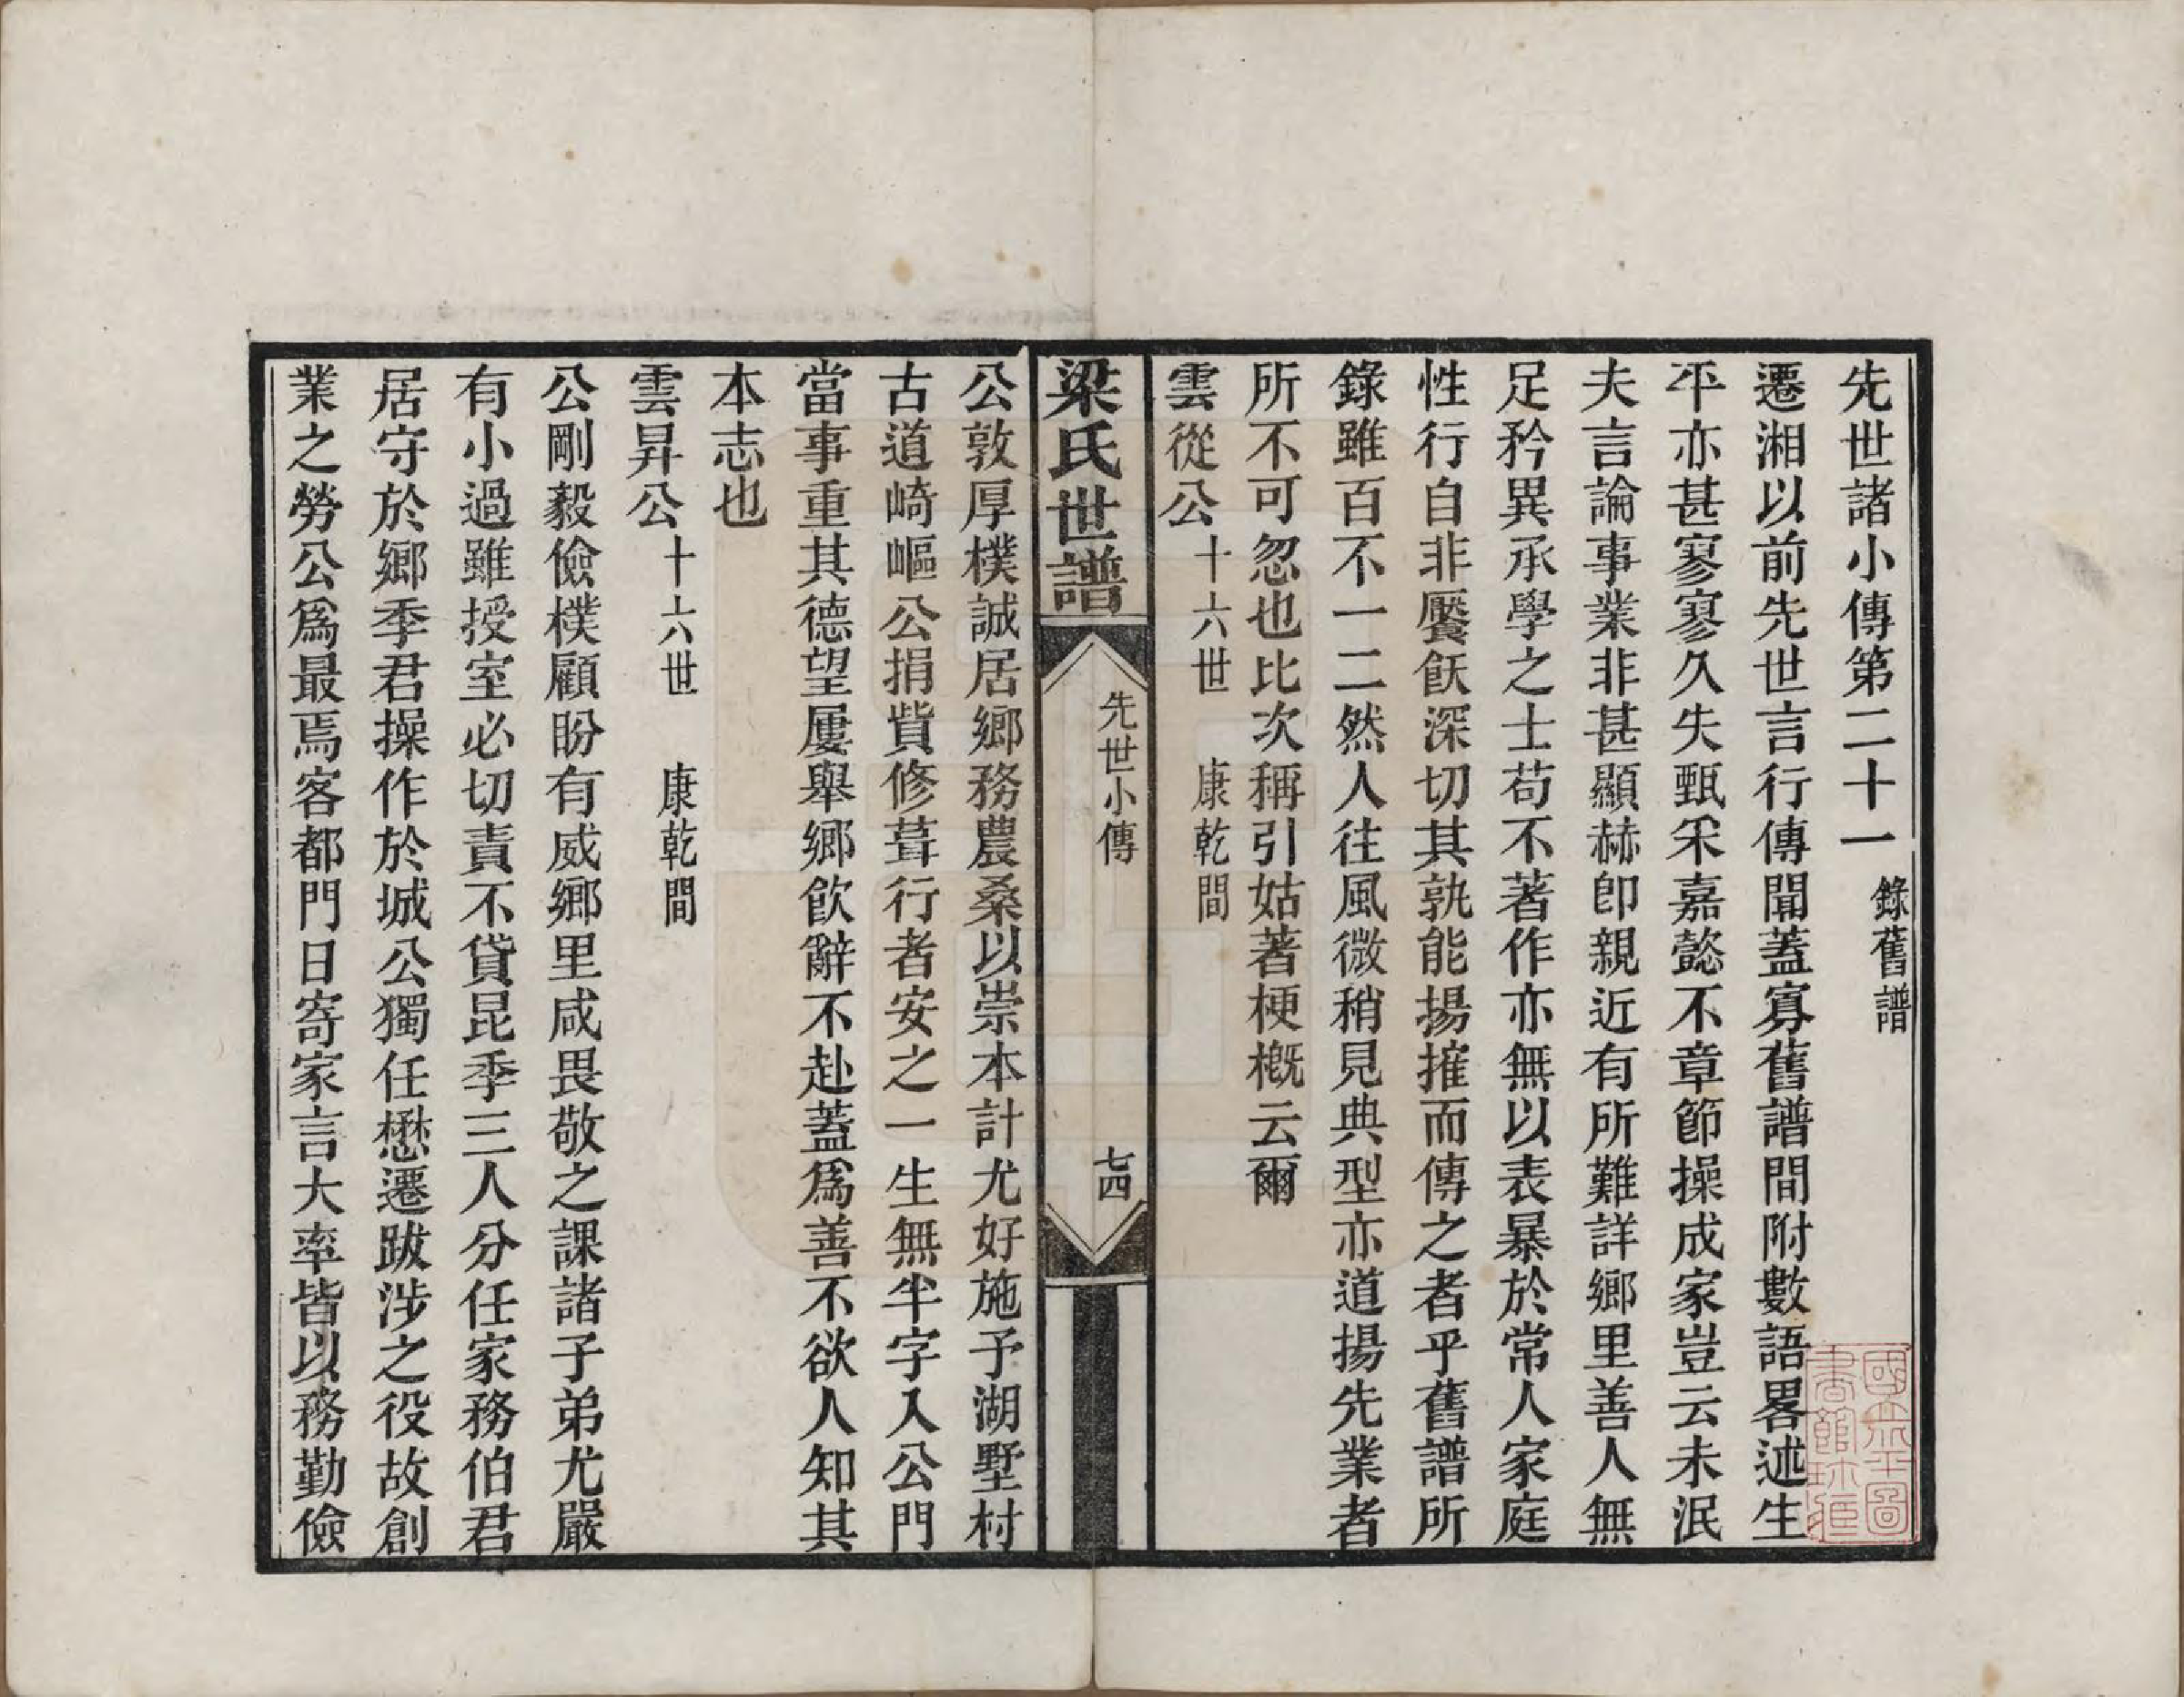 先世諸小傳第二十一 錄舊譜
遷湘以前先世言行傳聞蓋寡舊譜間附數語畧述生
平亦甚寥寥久失甄采嘉懿不章節操成家豈云未泯
夫言論事業非甚顯赫卽親近有所難詳鄉里善人無
足矜異承學之士苟不著作亦無以表暴於常人家庭
性行自非饜飫深切其孰能揚搉而傳之者乎舊譜所
錄雖百不一二然人往風微稍見典型亦道揚先業者
所不可忽也比次稱引姑著梗槪云爾
雲從公 十六世 康乾間
梁氏世譜 先世小傳 七四
公敦厚樸誠居鄉務農桑以崇本計尤好施予湖墅村
古道崎嶇公捐貲修葺行者安之一生無半字入公門
當事重其德望屢舉鄉飮辭不赴蓋爲善不欲人知其
本志也
雲昇公 十六世 康乾間
公剛毅儉樸顧盼有威鄉里咸畏敬之課諸子弟尤嚴
有小過雖授室必切責不貸昆季三人分任家務伯君
居守於鄉季君操作於城公獨任懋遷跋涉之役故創
業之勞公爲最焉客都門日寄家言大率皆以務勤儉
國立北平圖
書館珍藏